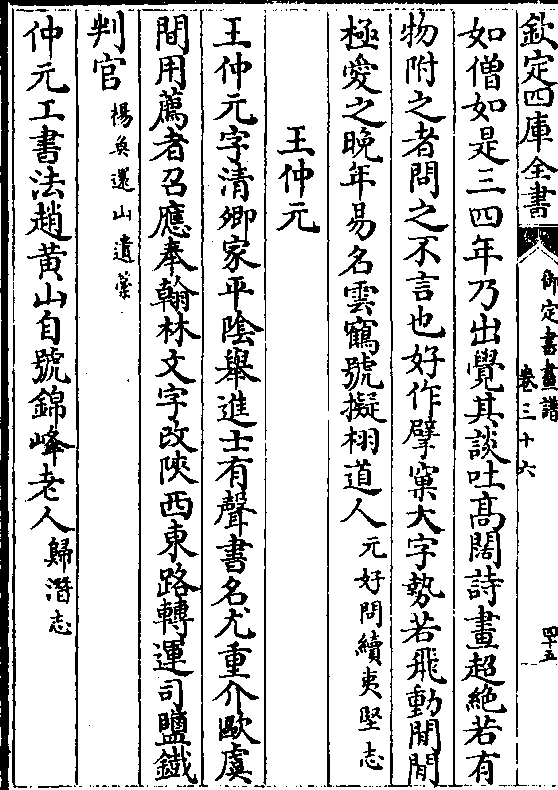 欽定四庫全書
御定書畫譜
卷三十六
四十五
如僧如是三四年乃出覺其談吐高闊詩畫超絶若有
物附之者問之不言也好作擘窠大字勢若飛動閒閒
極愛之晚年易名雲鶴號擬栩道人元好問續夷堅志
王仲元
王仲元字清卿家平陰舉進士有聲書名尤重介歐虞
間用薦者召應奉翰林文字改陜西東路轉運司鹽鐵
判官楊奐還山遺藁
仲元工書法趙黃山自號錦峰老人歸潛志